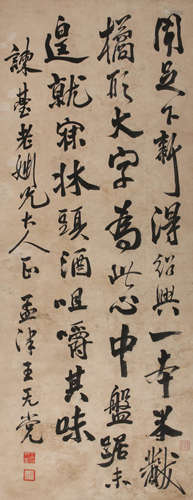 闻足下新得绍兴一本米黻
橅形大字為此心中盤踞未
遑就寐牀頭酒咀嚼其味
諫臺老姻兄大人正 孟津王无党